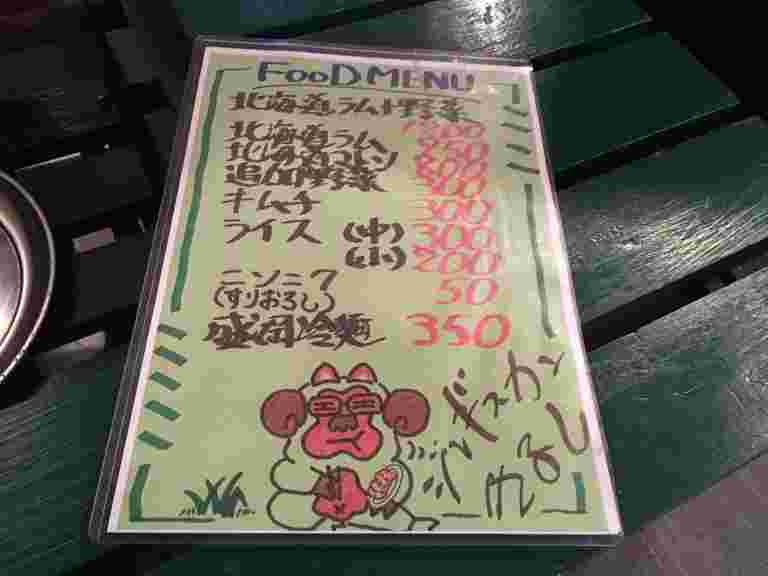 FOOD MENU
北海道ラム+野菜 1200
北海道ラム 950
北海道マトン 800
追加野菜 300
キムチ 300
ライス (中) 300
(小) 200
ニンニク 50
(すりおろし)
盛岡冷麺 350
ジンギスカン